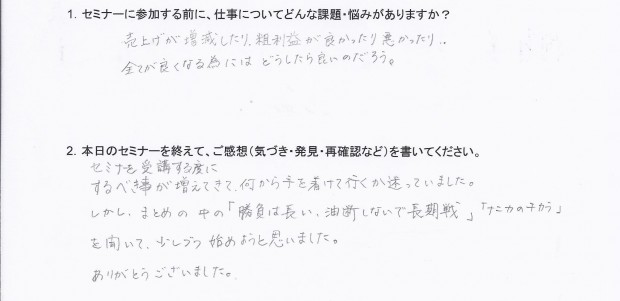 1. セミナーに参加する前に、仕事についてどんな課題・悩みがありますか?
売上げが増減したり、粗利益が良かったり悪かったり..
全てが良くなる為にはどうしたら良いのだろう。
2. 本日のセミナーを終えて、ご感想(気づき・発見・再確認など)を書いてください。
セミナを受講する度に
するべき事が増えてきて、何から手を着けて行くか迷っていました。
しかし、まとめの中の「勝負は長い、油断しないで長期戦」「ナニカのチカラ」
を聞いて、少しづつ始めようと思いました。
ありがとうございました。